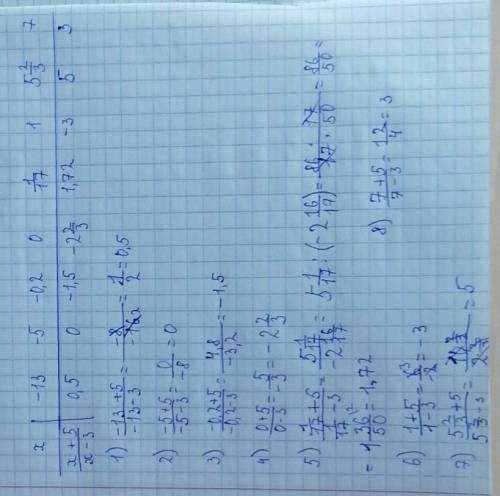 x | -13 -5 -0,2 0 1/17 1 5 2/3 7
(x+5)/(x-3) | 0,5 0 -1,5 -2 2/3 1,72 -3 5 3
1) (-13+5)/(-13-3) = -8/-16 = 1/2 = 0,5
2) (-5+5)/(-5-3) = 0/-8 = 0
3) (-0,2+5)/(-0,2-3) = 4,8/-3,2 = -1,5
4) (0+5)/(0-3) = 5/-3 = -2 2/3
5) (1/17+5)/(1/17-3) = (5 1/17)/(-2 16/17) = 5 1/17 : (-2 16/17) = 86/17 · 17/50 = 86/50 =
= 1 36/50 = 1,72
6) (1+5)/(1-3) = 6/-2 = -3
7) (5 2/3+5)/(5 2/3-3) = (10 2/3)/(2 2/3) = 5
8) (7+5)/(7-3) = 12/4 = 3